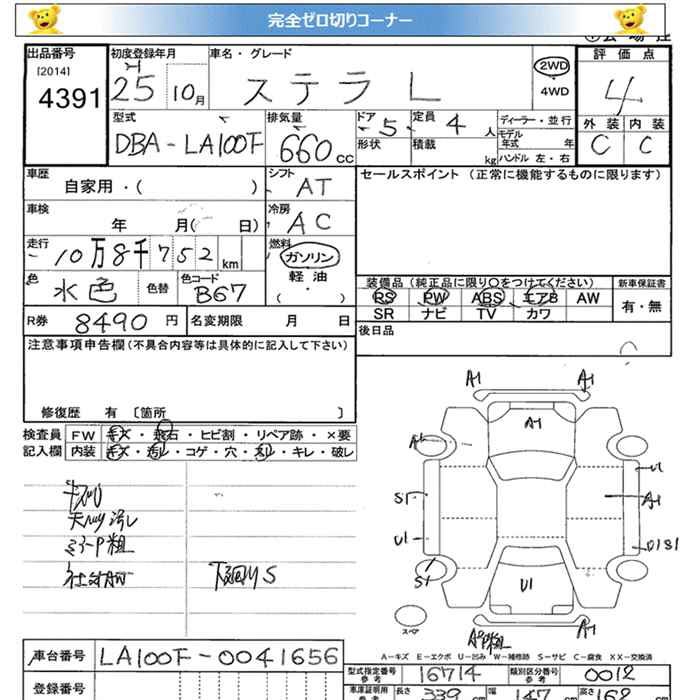 完全ゼロ切りコーナー
出品番号 初度登録年月 車名・グレード 評価点
[2014]
4391 25 10月 ステラ L 2WD 4
4WD
型式 排気量 ドア 定員 ディーラー・並行 外装 内装
DBA-LA100F 660cc 5 4人 モデル年式 年 C C
形状 積載 kg ハンドル 左・右
車歴 シフト セールスポイント (正常に機能するものに限ります)
自家用・( ) AT
車検 冷房
年 月( 日) AC
走行 燃料
10万8千752km ガソリン
色 色替 色コード 軽油
水色 B67 ( )
装備品(純正品に限り○をつけてください) 新車保証書
RS PW ABS エアB AW 有・無
SR ナビ TV カワ
R券 8490円 名変期限 月 日
後日品
注意事項申告欄(不具合内容等は具体的に記入して下さい)
修復歴 有 [箇所 ]
検査員 FW キズ・飛石・ヒビ割・リペア跡・×要
記入欄 内装 キズ・汚レ・コゲ・穴・スレ・キレ・破レ
A1 A1
A1
A1
U1
S1 A1
U1
S1 U1
スペア
A1
A−キズ E−エクボ U−凹み W−補修跡 S−サビ C−腐食 XX−交換済
車台番号 LA100F-0041656
型式指定番号 参考 16714 類別区分番号 参考 0012
登録番号
車庫証明用 参考 長さ 339cm 幅 147cm 高さ 162